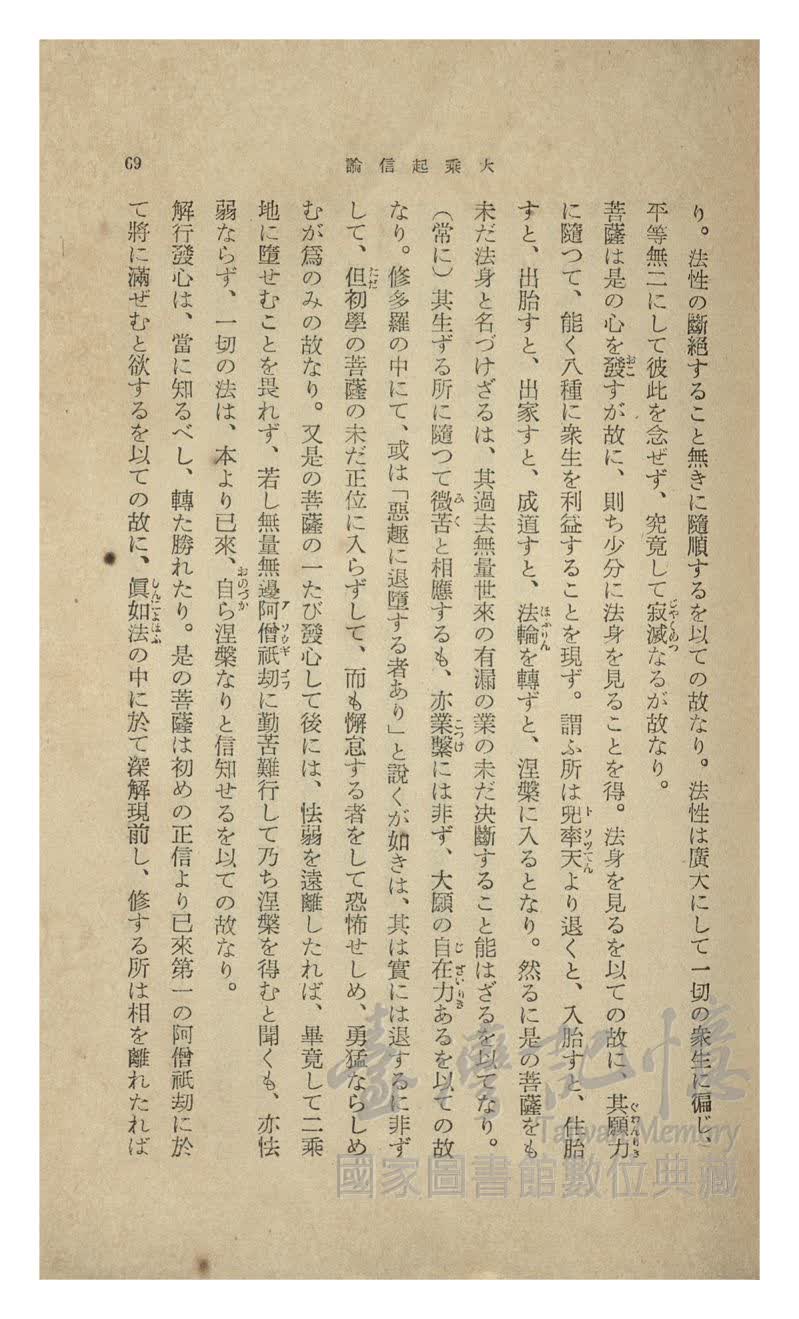 69
大乘起信論
り。法性の斷絕すること無きに隨順するを以ての故なり。法性は廣大にして一切の衆生に徧じ、
平等無二にして彼此を念ぜず、究竟して寂滅なるが故なり。
菩薩は是の心を發すが故に、則ち少分に法身を見ることを得。法身を見るを以ての故に、其願力
に隨つて、能く八種に衆生を利益することを現ず。謂ふ所は兜率天より退くと、入胎すと、住胎
すと、出胎すと、出家すと、成道すと、法輪を轉ずと、涅槃に入るとなり。然るに是の菩薩をも
未だ法身と名づけざるは、其過去無量世來の有漏の業の未だ決斷すること能はざるを以てなり。
(常に)其生ずる所に隨つて微苦と相應するも、亦業繫には非ず、大願の自在力あるを以ての故
なり。修多羅の中にて、或は「惡趣に退墮する者あり」と說くが如きは、其は實には退するに非ず
して、但初學の菩薩の未だ正位に入らずして、而も懈怠する者をして恐怖せしめ、勇猛ならしめ
むが爲のみの故なり。又是の菩薩の一たび發心して後には、怯弱を遠離したれば、畢竟して二乘
地に墮せむことを畏れず、若し無量無邊阿僧祇劫に勤苦難行して乃ち涅槃を得むと聞くも、亦怯
弱ならず、一切の法は、本より已來、自ら涅槃なりと信知せるを以ての故なり。
解行發心は、當に知るべし、轉た勝れたり。是の菩薩は初めの正信より已來第一の阿僧祇劫に於
て將に滿ぜむと欲するを以ての故に、眞如法の中に於て深解現前し、修する所は相を離れたれば
臺灣記憶
Taiwan Memory
國家圖書館數位典藏